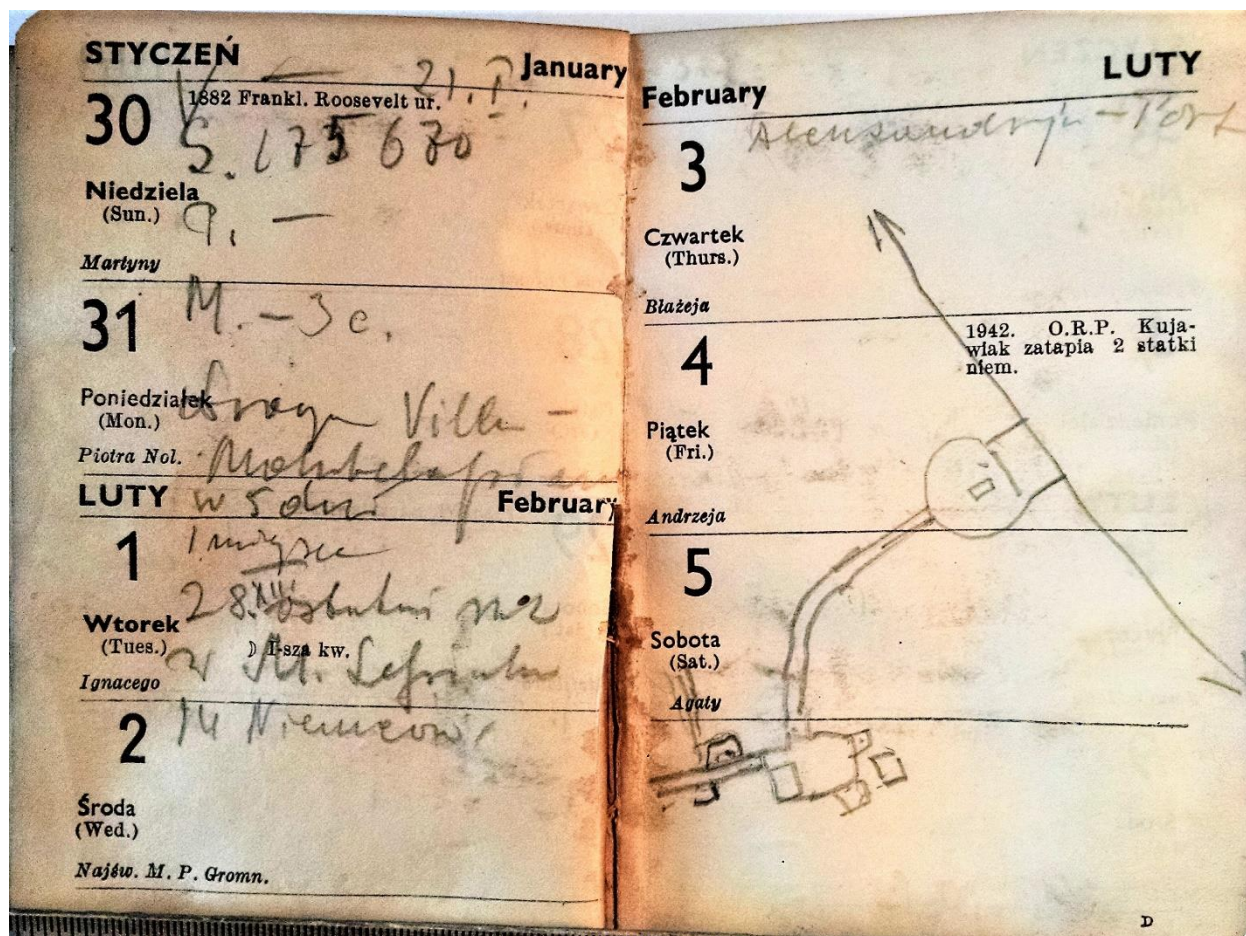 STYCZEŃ January
21. I.
30 1882 Frankl. Roosevelt ur.
S. 175 670
Niedziela
(Sun.)
9. —
Martyny
31 M. – 3 c.
Poniedziałek
(Mon.)
Droga Villa –
Piotra Nol.
LUTY February
w 5 dni
1 1 miejsce
28. ostatni raz
Wtorek
(Tues.) ☽ I-sza kw.
w M.
Ignacego
2 14 Niemców
Środa
(Wed.)
Najśw. M. P. Gromn.
February LUTY
Aleksandryja – Port
3
Czwartek
(Thurs.)
Błażeja
4 1942. O.R.P. Kuja-
wiak zatapia 2 statki
niem.
Piątek
(Fri.)
Andrzeja
5
Sobota
(Sat.)
Agaty
D